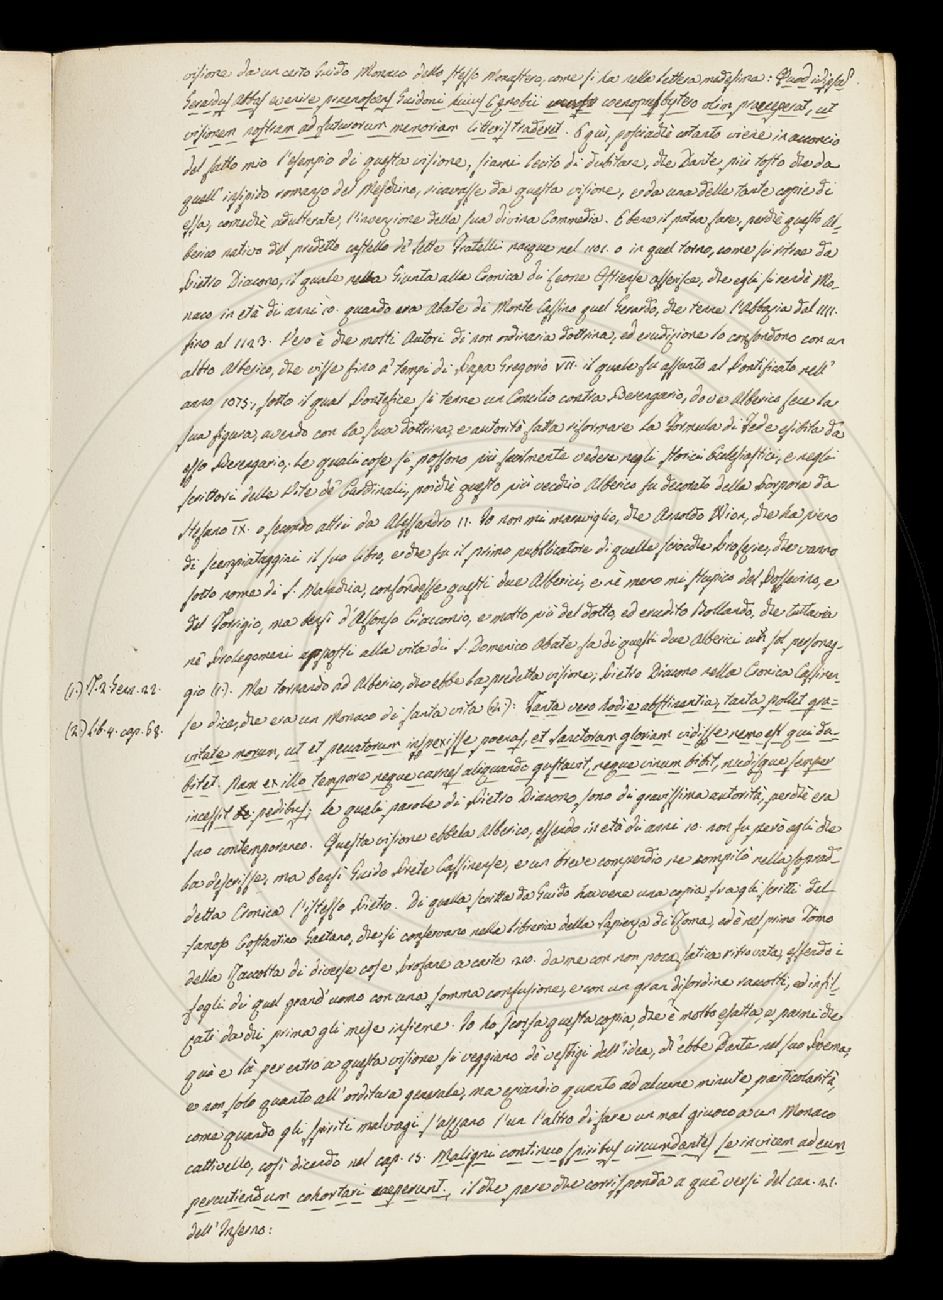 visione da un certo Guido Monaco dello stesso Monastero, come si ha nella lettera medesima: Quod
Gerardus Abbas huius Cenobii olim praeceperat, ut
visionem nostram ad futurorum memoriam litteris traderet. E quì, posciachè cotanto viene in acconcio
del fatto mio l'esempio di questa visione, siami lecito di dubitare, che Dante più tosto che da
quell'insipido romanzo del Meschino, ricavasse da questa visione, e da una delle tante copie di
essa, comechè adulterate, l'invenzione della sua divina Commedia. E bene il potea fare, perchè questo Al-
berico nativo del predetto castello de' sette Fratelli nacque nel 1101. o in quel torno, come si ritrae da
Pietro Diacono, il quale nella Giunta alla Cronica di Leone Ostiense asserisce, che egli si rendè Mo-
naco in età di anni 10. quando era Abate di Monte Cassino quel Gerardo, che tenne l'Abbazia dal 1111.
fino al 1123. Vero è che molti Autori di non ordinaria dottrina, ed erudizione lo confondono con un
altro Alberico, che visse fino a' tempi di Papa Gregorio VII. il quale fu assunto al Pontificato nell'
anno 1073, sotto il qual Pontefice si tenne un Concilio contra Berengario, dove Alberico fece la
sua figura, avendo con la sua dottrina, e autorità fatta riformare la Formula di Fede esibita da
esso Berengario. Le quali cose si possono più facilmente vedere negli storici Eclesiastici, e negli
scrittori delle Vite de' Cardinali, poichè questo più vecchio Alberico fu decorato della Porpora da
Stefano IX. o secondo altri da Alessandro II. Io non mi maraviglio, che Arnoldo Wion, che ha pieno
di scempiataggini il suo libro, e che fu il primo pubblicatore di quelle sciocche Profezie, che vanno
sotto nome di S. Malachia, confondesse questi due Alberici, e nè meno mi stupisco del Possevino, e
del Torrigio, ma bensì d'Alfonso Ciacconio, e molto più del dotto, ed erudito Bollando, che tuttavia
ne' Prolegomeni apposti alla vita di S. Domenico Abate fa di questi due Alberici un sol personag-
gio (1). Ma tornando ad Alberico, che ebbe la predetta visione, Pietro Diacono nella Cronica Cassinen-
(1.) T. 2. Gen. 22.
se dice, che era un Monaco di santa vita (2): Tanta vero hodie abstinentia, tanta pollet gra-
(2.) Lib. 4. cap. 68.
vitate morum, ut et peccatorum inspexisse poenas, et sanctorum gloriam vidisse nemo est qui du-
bitet. Nam ex illo tempore neque carnes aliquando gustavit, neque vinum bibit, nudisque semper
incessit pedibus; le quali parole di Pietro Diacono sono di gravissima autorità, perchè era
suo contemporaneo. Questa visione ebbela Alberico, essendo in età di anni 10. non fu però egli che
la descrisse, ma bensì Guido Prete Cassinense, e un breve compendio ne compilò nella soprad-
detta Cronica l'istesso Pietro. Di quella scritta da Guido havvene una copia fra gli scritti del
famoso Costantino Gaetano, che si conservano nella libreria della Sapienza di Roma, ed è nel primo Tomo
della Raccolta di diverse cose profane a carte 210. da me con non poca fatica ritrovata, essendo i
fogli di quel grand'uomo con una somma confusione, e con un gran disordine raccolti, ed infil-
zati da chi prima gli mese insieme. Io ho scorsa questa copia, che è molto esatta, e parmi che
quà e là per entro a questa visione si veggiano de' vestigi dell'idea, ch'ebbe Dante nel suo Poema,
e non solo quanto all'orditura generale, ma eziandio quanto ad alcune minute particolarità,
come quando gli spiriti malvagi s'aizzano l'un l'altro di fare un mal giuoco a un Monaco
cattivello, così dicendo nel cap. 15. Maligni continuo spiritus circumdantes se invicem ad eum
percutiendum cohortari caeperunt, il che pare che corrisponda a què versi del can. 21.
dell'Inferno: